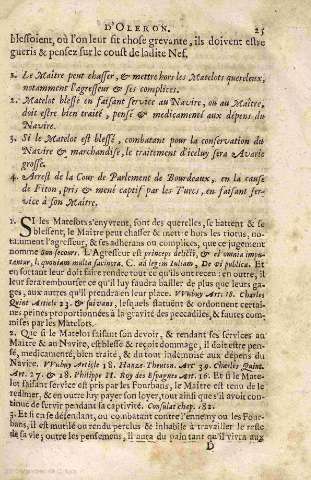 D'OLERON. 25
blessoient, où l'on leur fit chose grevante, ils doivent estre
gueris & pensez sur le coust de ladite Nef.
1. Le Maitre peut chasser, & mettre hors les Matelots quereleux,
notamment l'agresseur & ses complices.
2. Matelot blessé en faisant service au Navire, ou au Maitre,
doit estre bien traité, pensé & medicamenté aux dépens du
Navire.
3. Si le Matelot est blessé, combatant pour la conservation du
Navire & marchandise, le traitement d'iceluy sera Avarie
grosse.
4. Arrest de la Cour de Parlement de Bourdeaux, en la cause
de Fiton, pris & mené captif par les Turcs, en faisant ser-
vice à son Maitre.
1. SI les Matelots s'enyvrent, font des querelles, se battent & se
blessent, le Maitre peut chasser & mettre hors les rioteus, no-
tamment l'agresseur, & ses adherans ou complices, que ce jugement
nomme son secours. L'Agresseur est princeps delicti, & ei omnia impu-
tantur, l. quoniam multa facinora. C. ad legem Juliam, De vi publica. Et
en sortant leur doit faire rendre tout ce qu'ils ont receu : en outre, il
leur fera rembourser ce qu'il luy faudra bailler de plus que leurs ga-
ges, aux autres qu'il prendra en leur place. VVisbuy Art. 18. Charles
Quint Article 23. & suivans, lesquels statuent & ordonnent certai-
nes peines proportionnées à la gravité des peccadiles, & fautes com-
mises par les Matelots.
2. Que si le Matelot faisant son devoir, & rendant ses services au
Maitre & au Navire, est blessé, & reçoit dommage, il doit estre pen-
sé, medicamenté, bien traité, & du tout indemnisé aux dépens du
Navire. VVisbuy Article 18. Hanze Theuton. Art. 39. Charles Quint.
Art. 27. & 28. Philippe II. Roy des Espagnes Art. 16. Et si le Mate-
lot faisant service est pris par les Fourbans, le Maitre est tenu de le
redimer, & en outre luy payer son loyer, tout ainsi que s'il avoit con-
tinué de servir pendant sa captivité. Consulat chap. 182.
3. Et si en se défendant, ou combatant contre l'ennemy ou les Four-
bans, il est mutilé ou rendu perclus & inhabile à travailler le reste
de sa vie; outre les pensemens, il aura du pain tant qu'il vivra aux
D